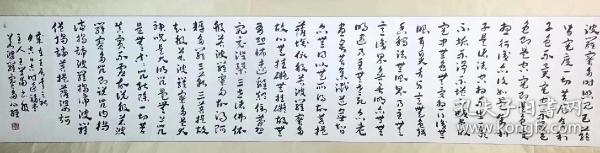 波羅蜜多時照見五蘊
皆空度一切苦厄舍利
子色不異空空不異
色色即是空空即是色受
想行識亦復如是舍利
子是諸法空相不生不滅
不垢不淨不增不減是故
空中無色無受想行識無
眼耳鼻舌身意無色聲香
味觸法無眼界乃至無
意識界無無明亦無無
明盡乃至無老死亦無老
死盡無苦集滅道無智
亦無得以無所得故菩提
薩埵依般若波羅蜜多
故心無罣礙無罣礙故無
有恐怖遠離顛倒夢想
究竟涅槃三世諸佛依
般若波羅蜜多故得阿
耨多羅三藐三菩提故
知般若波羅蜜多是大
神咒是大明咒是無上咒
是無等等咒能除一切苦
真實不虛故說般若波
羅蜜多咒即說咒曰揭
諦揭諦波羅揭諦波羅
僧揭諦菩提薩婆訶
孔子旧书网